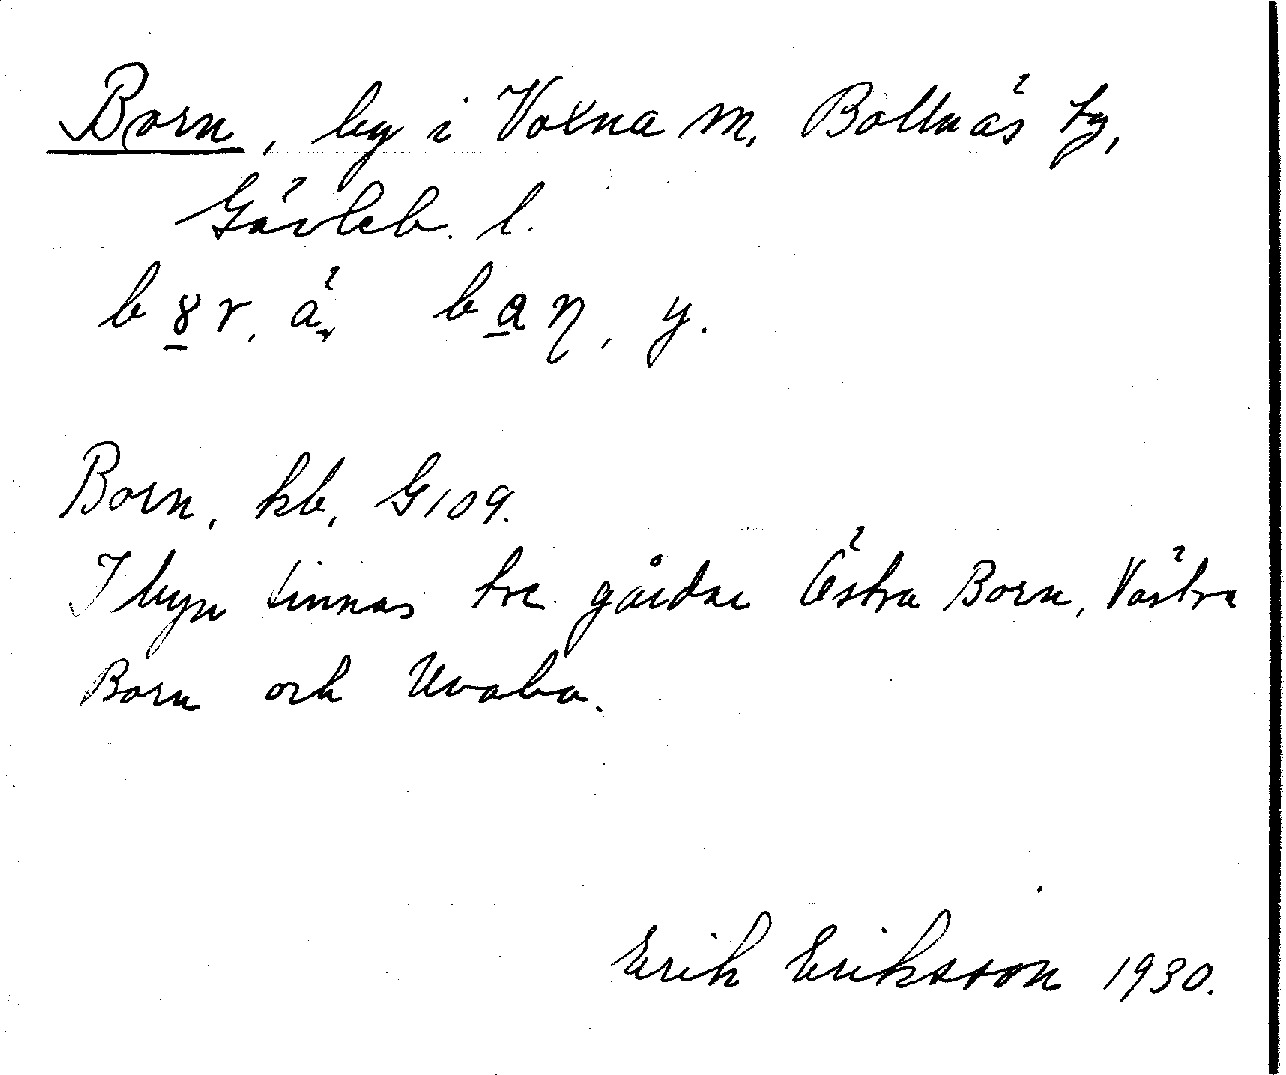 Born, by i Voxna m, Bollnäs tg,
Gävleb. l.
Born, kb, G109.
I byn finnas tre gårdar Östra Born, Västra
Born och Uvabo.
Erik Eriksson 1930.